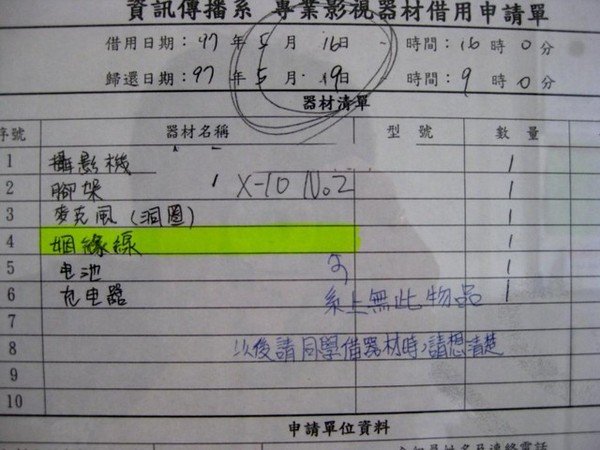 資訊傳播系 專業影視器材借用申請單
借用日期：97年5月16日 ~ 時間：16時0分
歸還日期：97年5月19日 ~ 時間：9時0分
器材清單
序號 器材名稱 型號 數量
1 攝影機 1
2 腳架 X-10 No.2 1
3 麥克風(洞圈) 1
4 姻緣線 1
5 电池 1
6 充电器 系上無此物品 1
7
8 以後請同學借器材時,請想清楚
9
10
申請單位資料